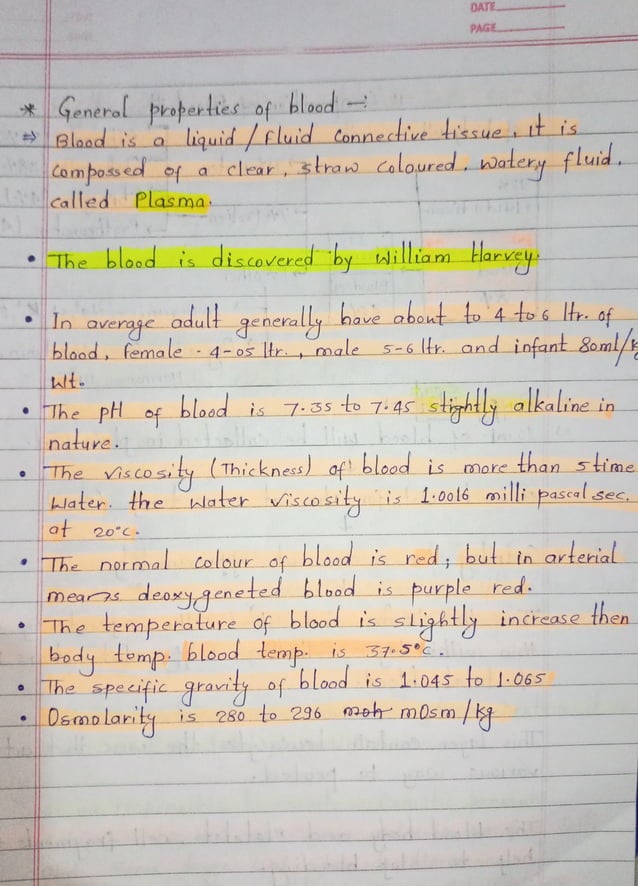 DATE
PAGE
* General properties of blood –:
⇒ Blood is a liquid / fluid connective tissue, it is
compossed of a clear, straw coloured, watery fluid,
called Plasma.
• The blood is discovered by William Harvey.
• In average adult generally have about to 4 to 6 ltr. of
blood, female - 4-05 ltr., male 5-6 ltr. and infant 80ml/k
Wt.
• The pH of blood is 7.35 to 7.45 slightly alkaline in
nature.
• The viscosity (Thickness) of blood is more than 5 time
water. the water viscosity is 1.0016 milli pascal sec.
at 20°c.
• The normal colour of blood is red; but in arterial
means deoxygeneted blood is purple red.
• The temperature of blood is slightly increase then
body temp. blood temp. is 37.5°c.
• The specific gravity of blood is 1.045 to 1.065
• Osmolarity is 280 to 296 mOsm/kg